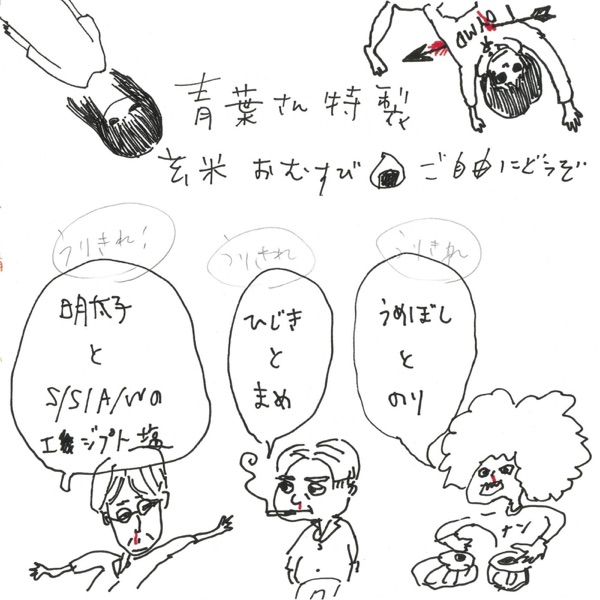 青葉さん特製
玄米 おむすび🍙ご自由にどうぞ
うりきれ!
うりきれ
うりきれ
明太子
と
S/S/A/Wの
エジプト塩
ひじき
と
まめ
うめぼし
と
のり
ナン